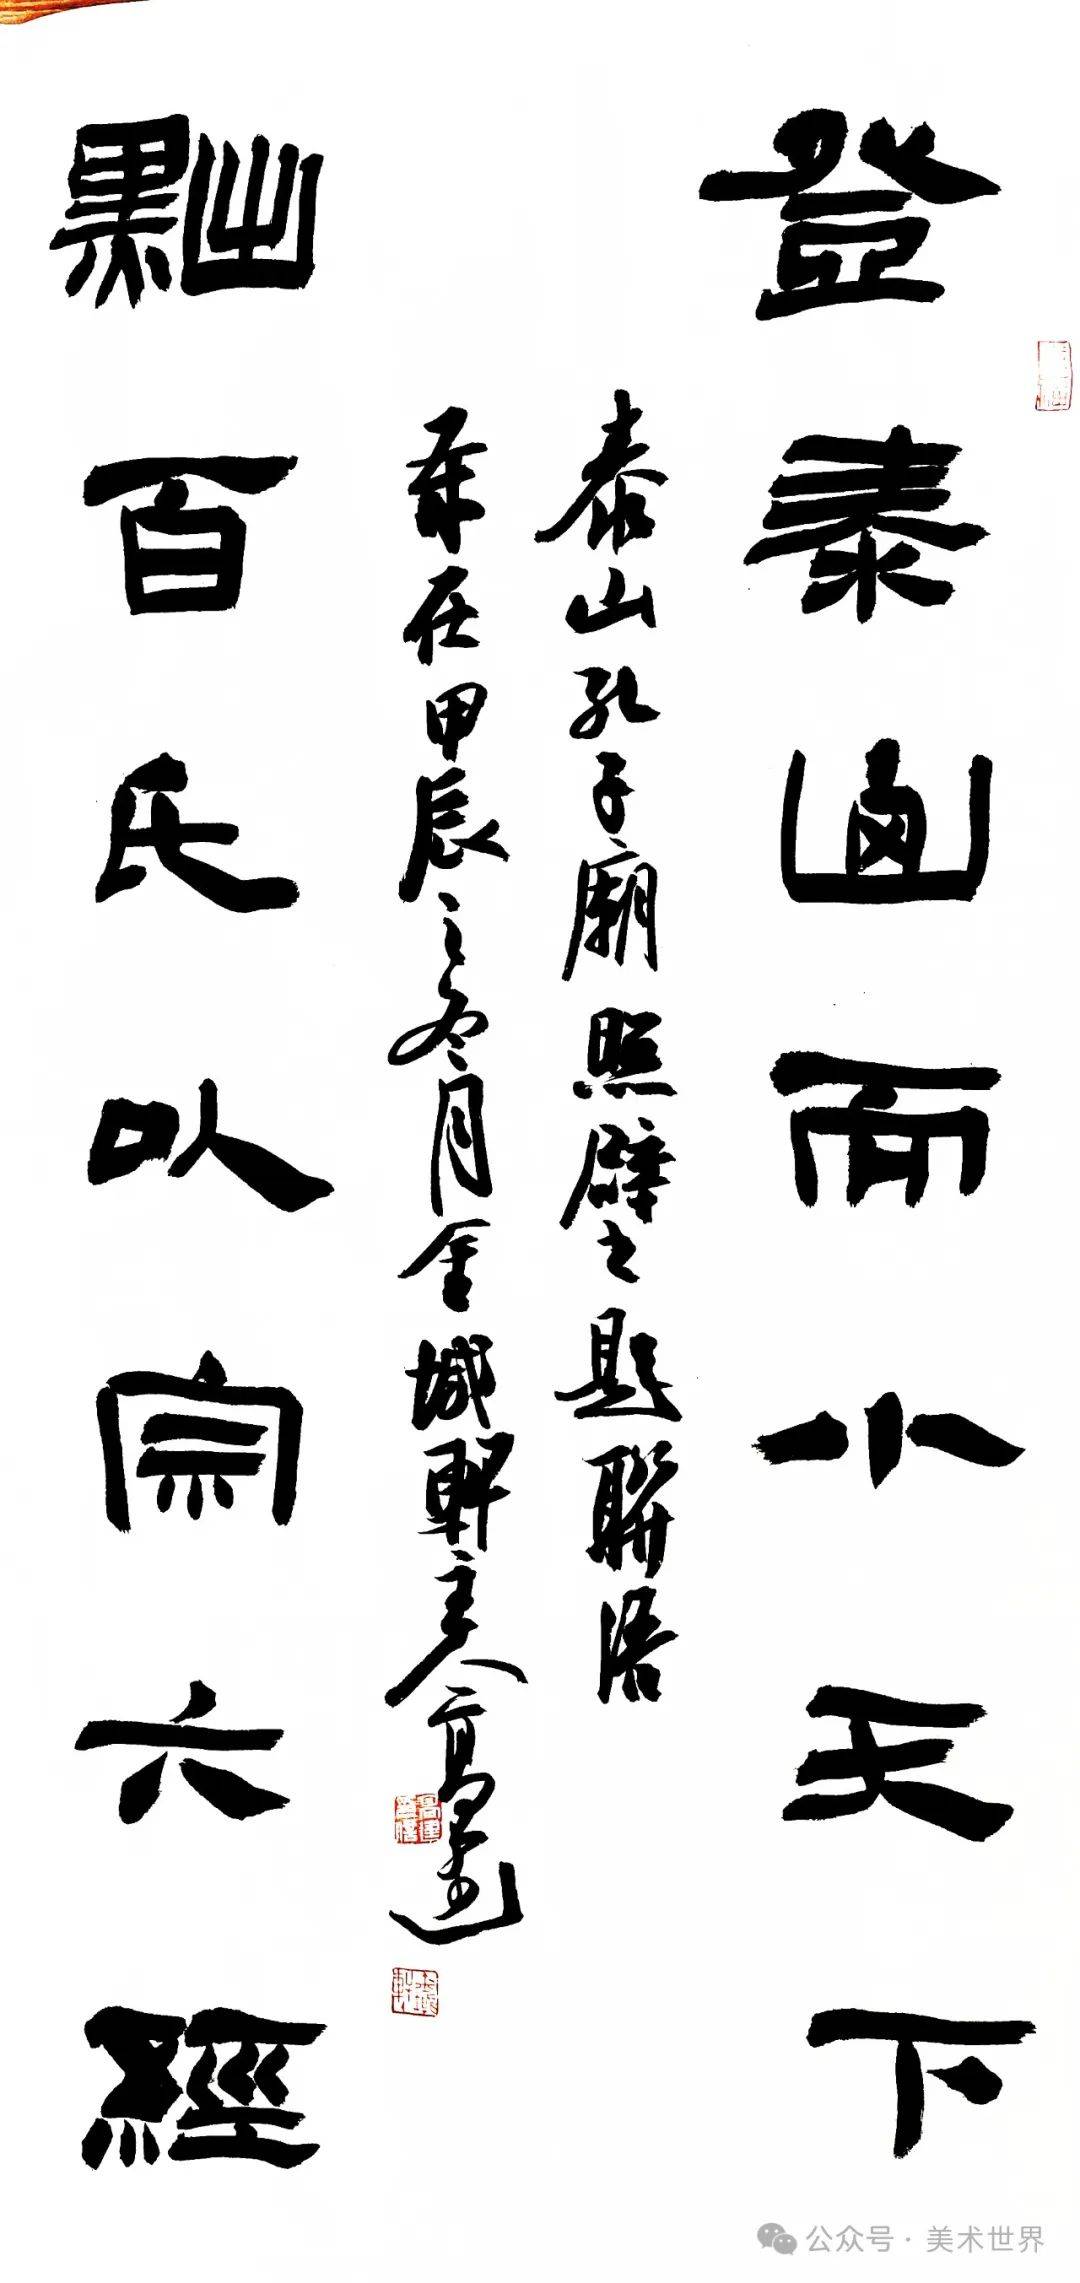 登泰山而小天下
泰山孔子廟照壁之題聯語
歲在甲辰之冬月金城軒主人高
黜百氏以宗六經
公众号 · 美术世界